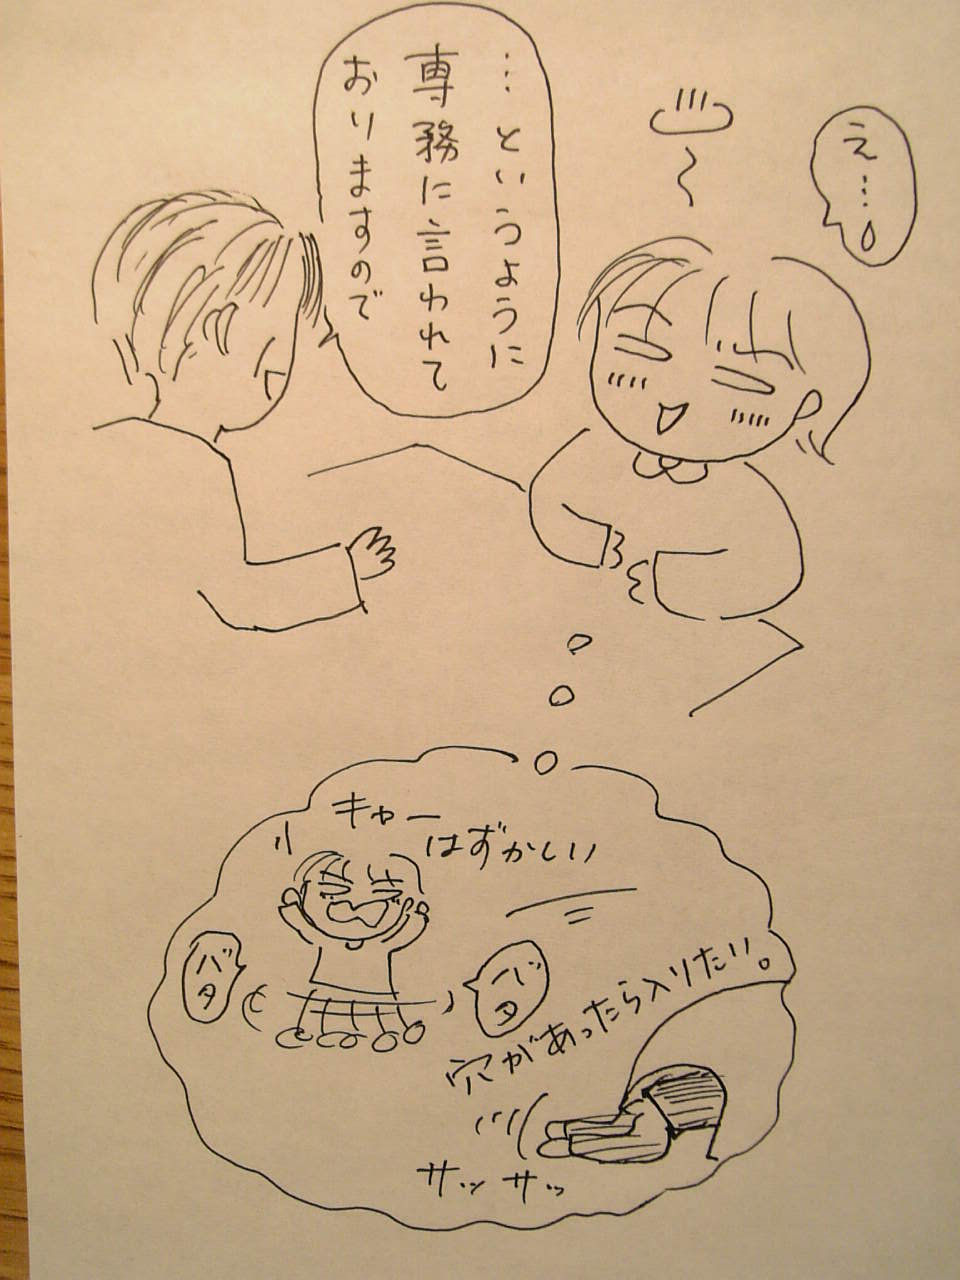 え…
…というように
専務に言われて
おりますので
キャー
はずかしい
バタ
バタ
穴があったら入りたい。
サッサッ